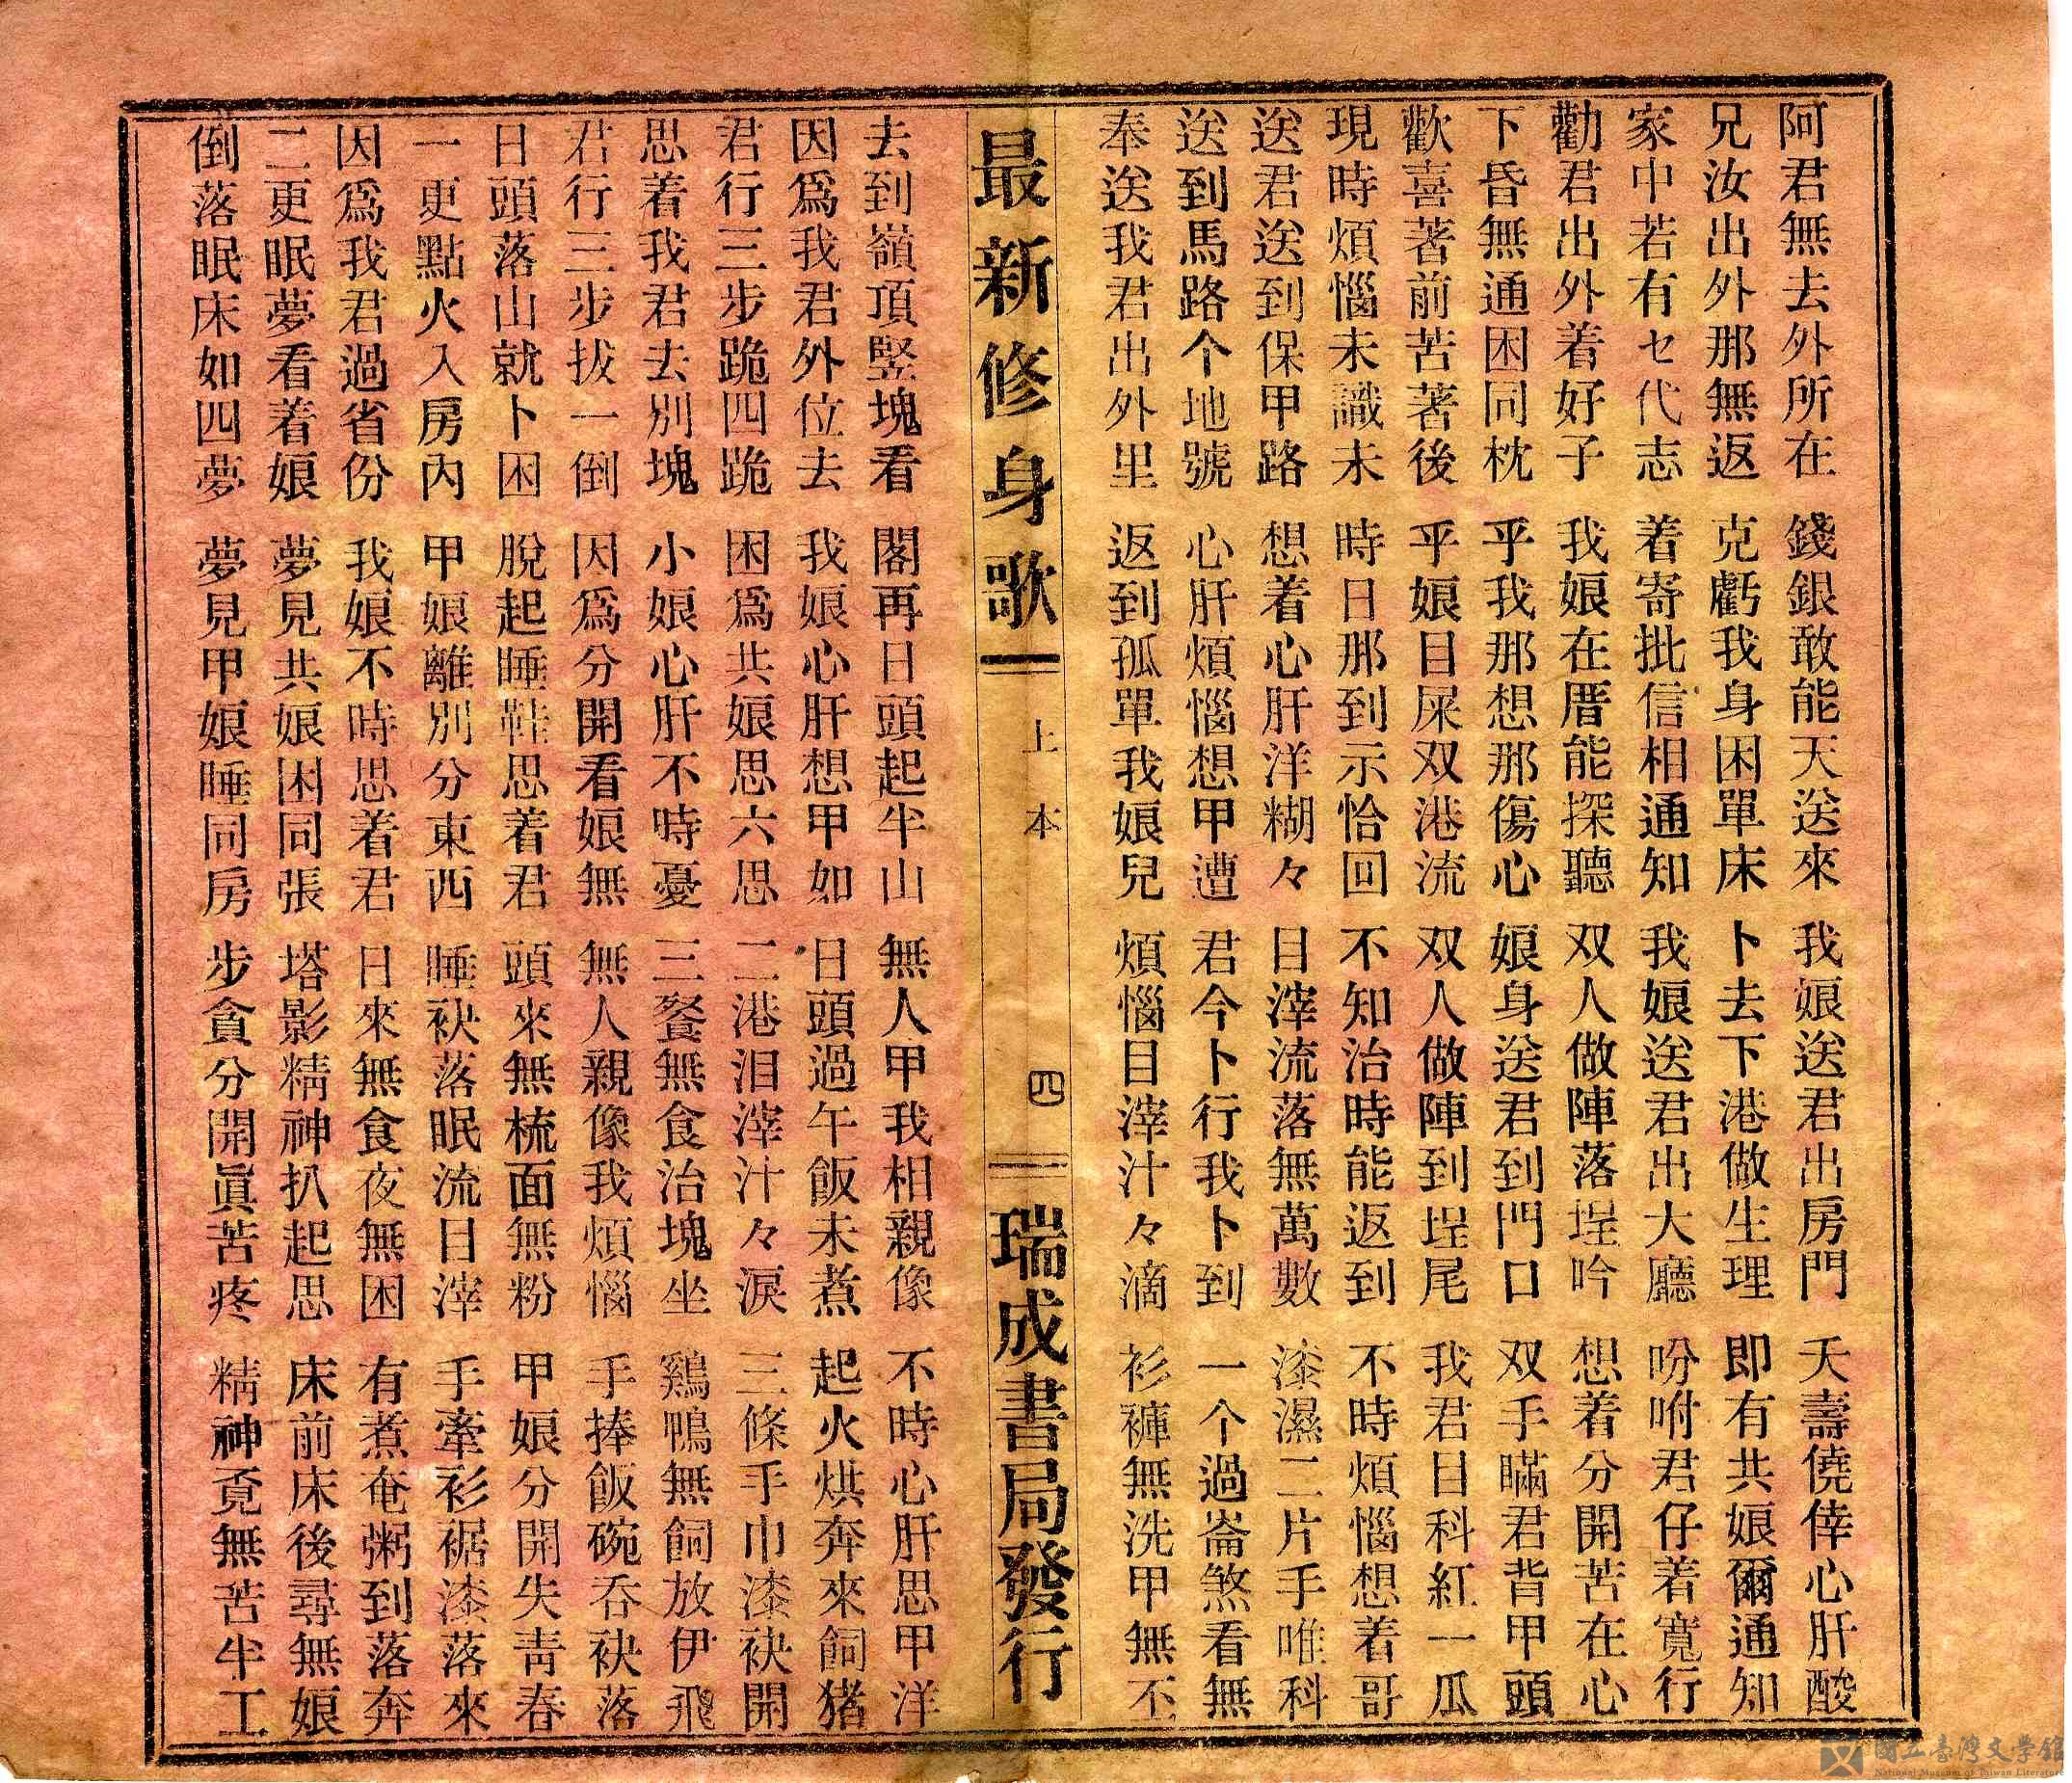 阿君無去外所在 錢銀敢能天送來 我娘送君出房門 夭壽僥倖心肝酸
兄汝出外那無返 克虧我身困單床 卜去下港做生理 即有共娘爾通知
家中若有セ代志 着寄批信相通知 我娘送君出大廳 吩咐君仔着寬行
勸君出外着好子 我娘在厝能探聽 双人做陣落埕吟 想着分開苦在心
下昏無通困同枕 乎我那想那傷心 娘身送君到門口 双手瞞君背甲頭
歡喜著前苦著後 乎娘目屎双港流 双人做陣到埕尾 我君目科紅一瓜
現時煩惱未識未 時日那到示恰回 不知治時能返到 不時煩惱想着哥
送君送到保甲路 想着心肝洋糊々 目滓流落無萬數 漆濕二片手唯科
送到馬路个地號 心肝煩惱想甲遭 君今卜行我卜到 一个過崙煞看無
奉送我君出外里 返到孤單我娘兒 煩惱目滓汁々滴 衫褲無洗甲無不
最新修身歌 上本 四 瑞成書局發行
去到嶺頂竪塊看 閣再日頭起半山 無人甲我相親像 不時心肝思甲洋
因爲我君外位去 我娘心肝想甲如 日頭過午飯未煮 起火烘奔來飼猪
君行三步跪四跪 困爲共娘思六思 二港泪滓汁々淚 三條手巾漆袂開
思着我君去別塊 小娘心肝不時憂 三餐無食治塊坐 鷄鴨無飼放伊飛
君行三步拔一倒 因爲分開看娘無 無人親像我煩惱 手捧飯碗吞袂落
日頭落山就卜困 脫起睡鞋思着君 頭來無梳面無粉 甲娘分開失靑春
一更點火入房內 甲娘離別分東西 睡袂落眠流目滓 手牽衫裾漆落來
因爲我君過省份 我娘不時思着君 日來無食夜無困 有煮奄粥到落奔
二更眠夢看着娘 夢見共娘困同張 塔影精神扒起思 床前床後尋無娘
倒落眠床如四夢 夢見甲娘睡同房 步貪分開眞苦疼 精神覔無苦半工
國立臺灣文學館
National Museum of Taiwan Literature